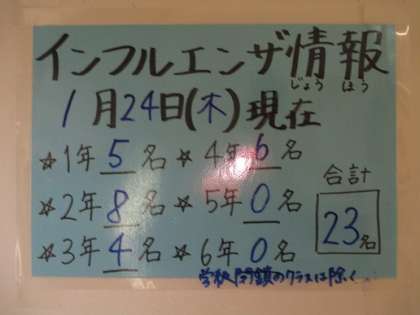 インフルエンザ情報
じょう ほう
1月24日(木)現在
☆1年 5名 ☆4年 6名
☆2年 8名 ☆5年 0名
☆3年 4名 ☆6年 0名
合計
23名
学級閉鎖のクラスは除く